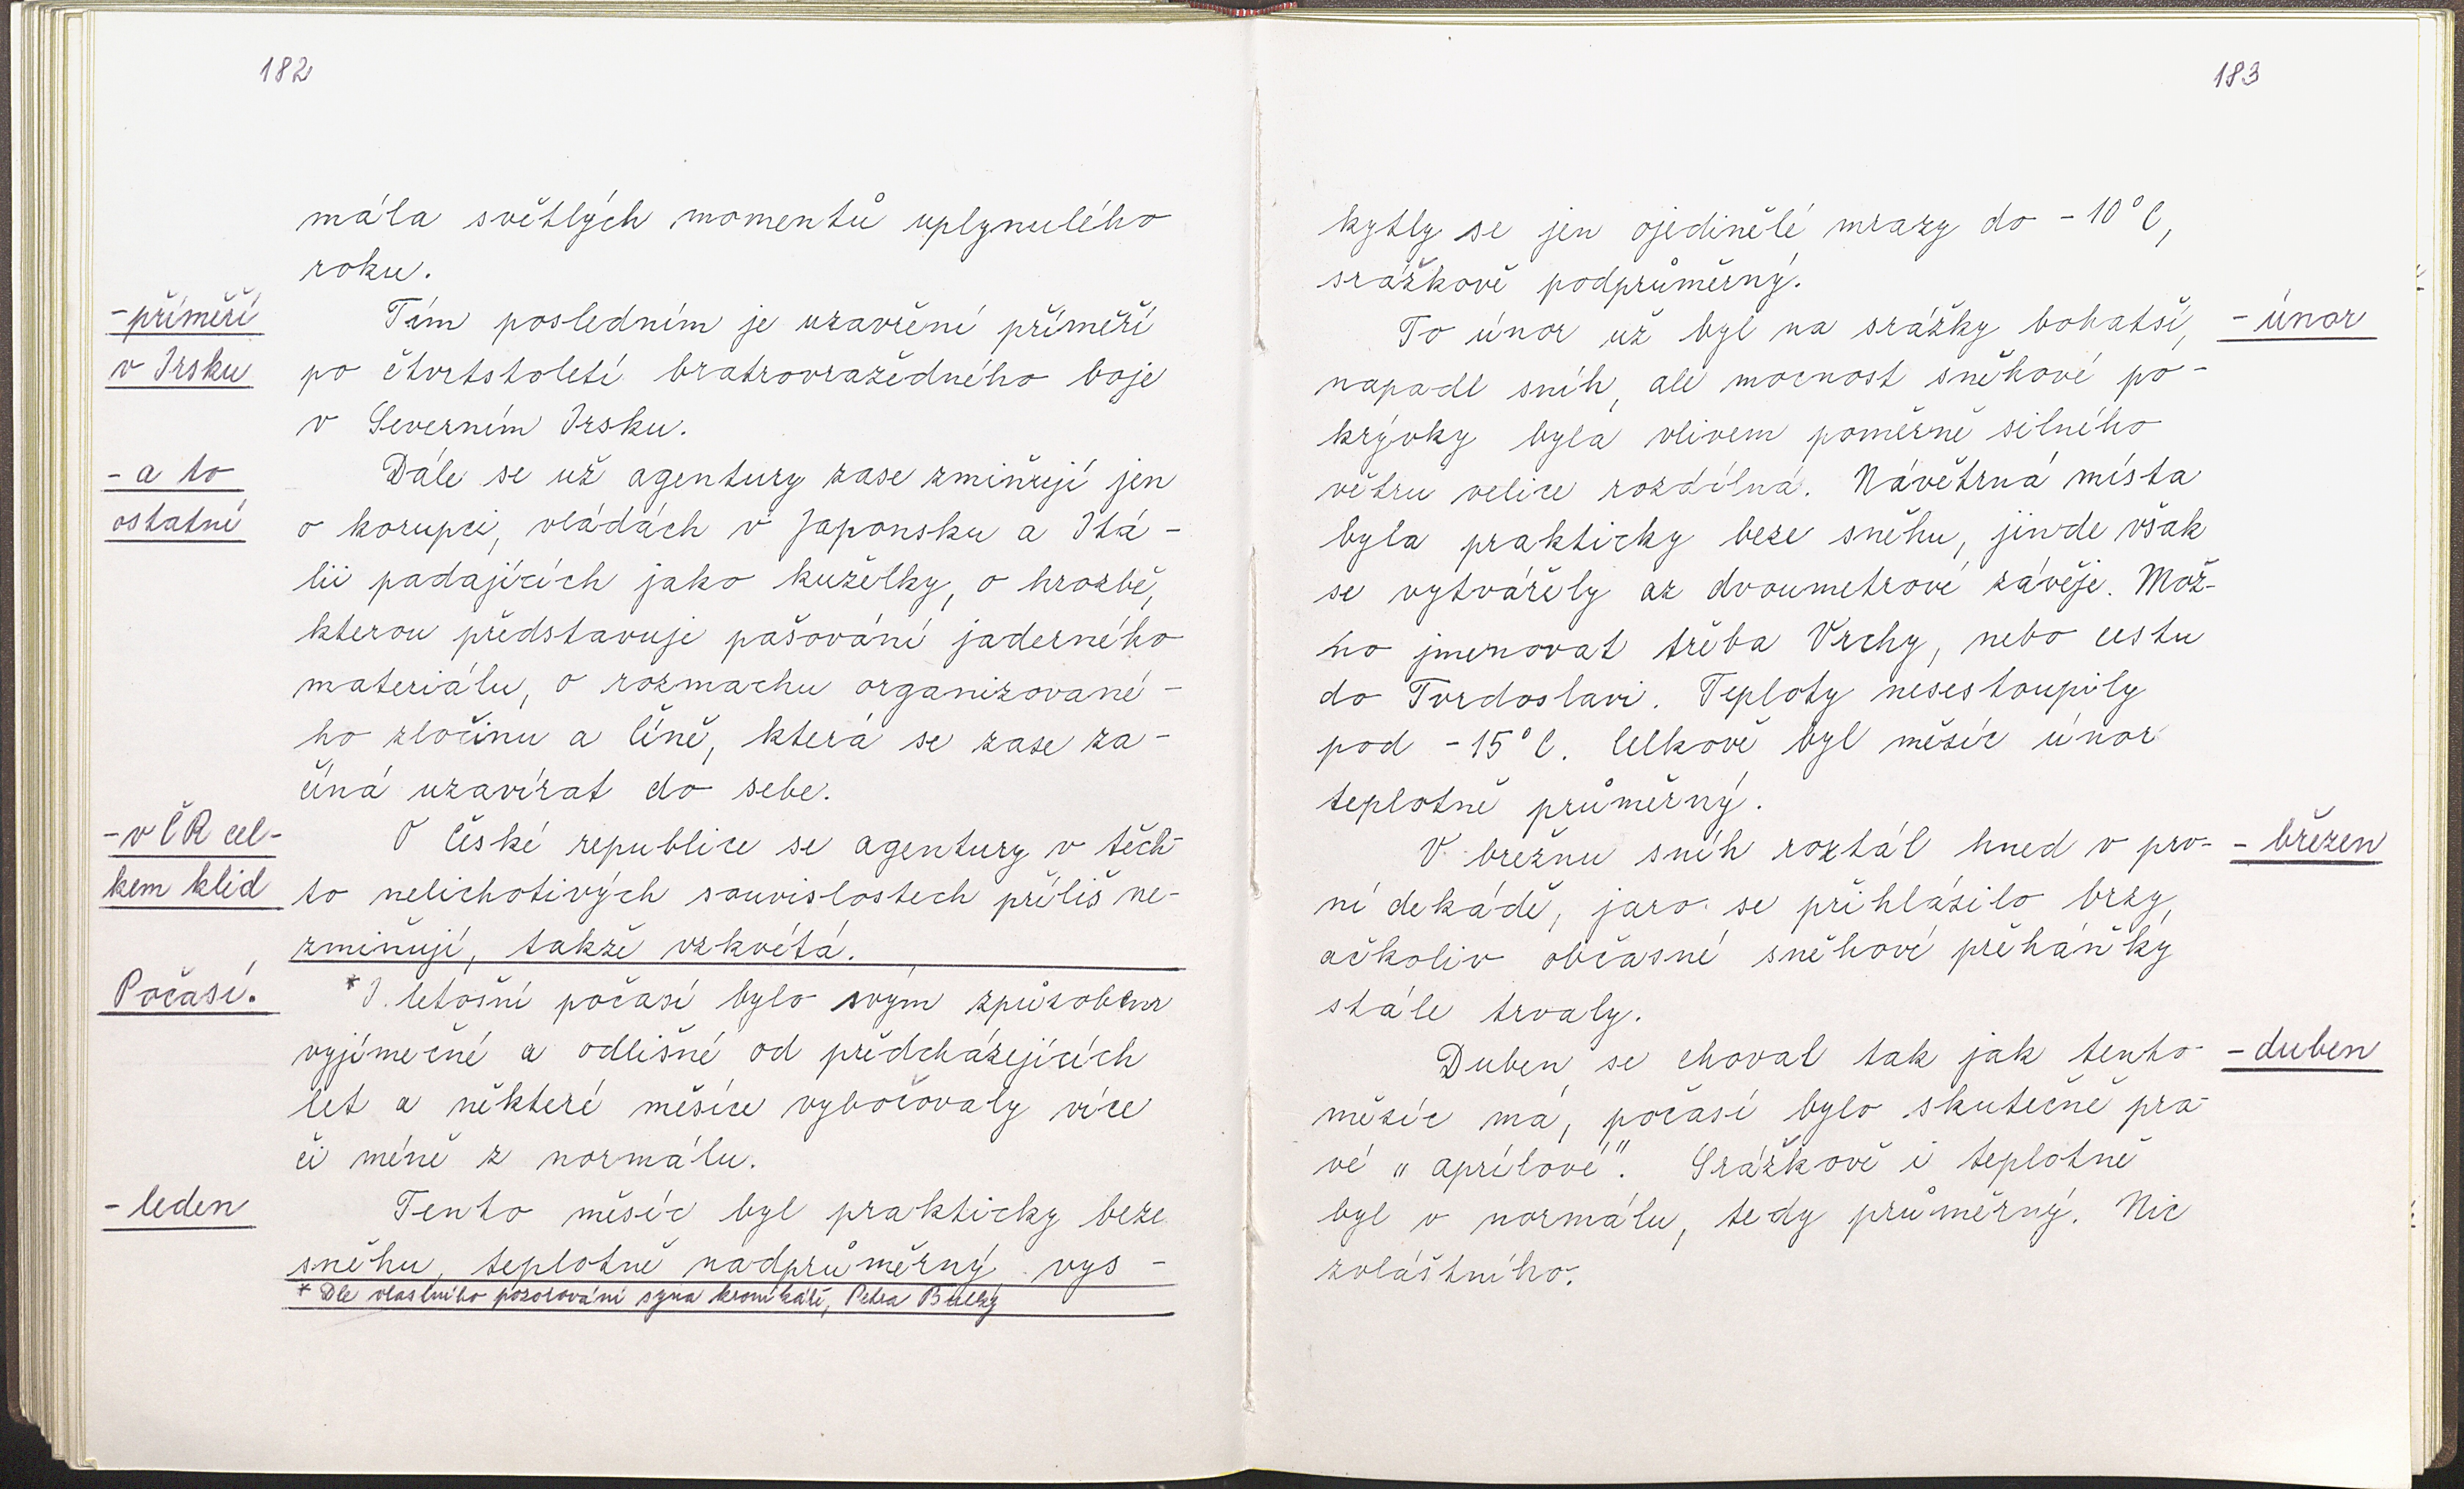 182
mála světlých momentů uplynulého
roku.
-příměří
Tím posledním je uzavření příměří
v Irsku
po čtvrtstoletí bratrovražedného boje
v Severním Irsku.
- a to
Dále se už agentury zase zmiňují jen
ostatní
o korupci, vládách v Japonsku a Itá-
lii padajících jako kuželky, o hrozbě,
kterou představuje pašování jaderného
materiálu, o rozmachu organizované-
ho zločinu a Číně, která se zase za-
číná uzavírat do sebe.
- v ČR cel-
O České republice se agentury v těch-
kem klid
to nelichotivých souvislostech příliš ne-
zmiňují, takže vzkvétá.
Počasí.
* I letošní počasí bylo svým způsobem
vyjímečné a odlišné od předcházejících
let a některé měsíce vybočovaly více
či méně z normálu.
- leden
Tento měsíc byl prakticky beze
sněhu, teplotně nadprůměrný vys-
* Dle vlastního pozorování syna kronikáře, Petra
183
kytly se jen ojedinělé mrazy do -10°C,
srážkově podprůměrný.
To únor už byl na srážky bohatší,
- únor
napadl sníh, ale mocnost sněhové po-
krývky byla vlivem poměrně silného
větru velice rozdílná. Návětrná místa
byla prakticky beze sněhu, jinde však
se vytvářely až dvoumetrové závěje. Mož-
no jmenovat třeba Vrchy, nebo cestu
do Tvrdoslavi. Teploty nesestoupily
pod -15°C. Celkově byl měsíc únor
teplotně průměrný.
V březnu sníh roztál hned v prv-
- březen
ní dekádě, jaro se přihlásilo brzy,
ačkoliv občasné sněhové přeháňky
stále trvaly.
Duben se choval tak jak tento
- duben
měsíc má, počasí bylo skutečně pra-
vé "aprílové". Srážkově i teplotně
byl v normálu, tedy průměrný. Nic
zvláštního.